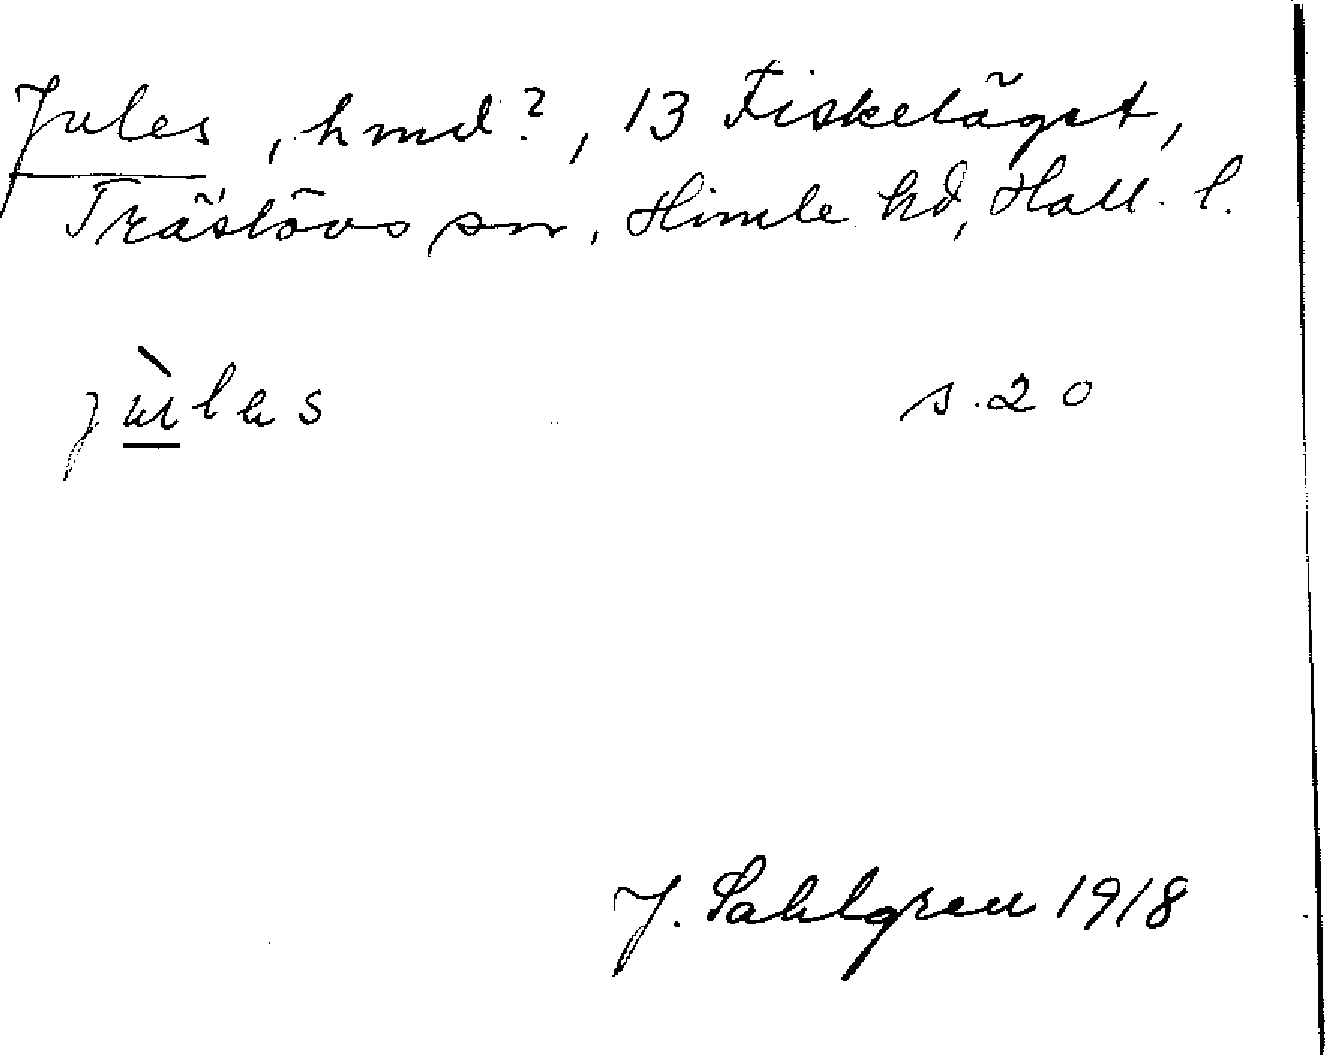 Jules, hmd?, 13 Fiskeläget,
Träslövs sn, Himle hd, Hall. l.
s. 20
J. Sahlgren 1918